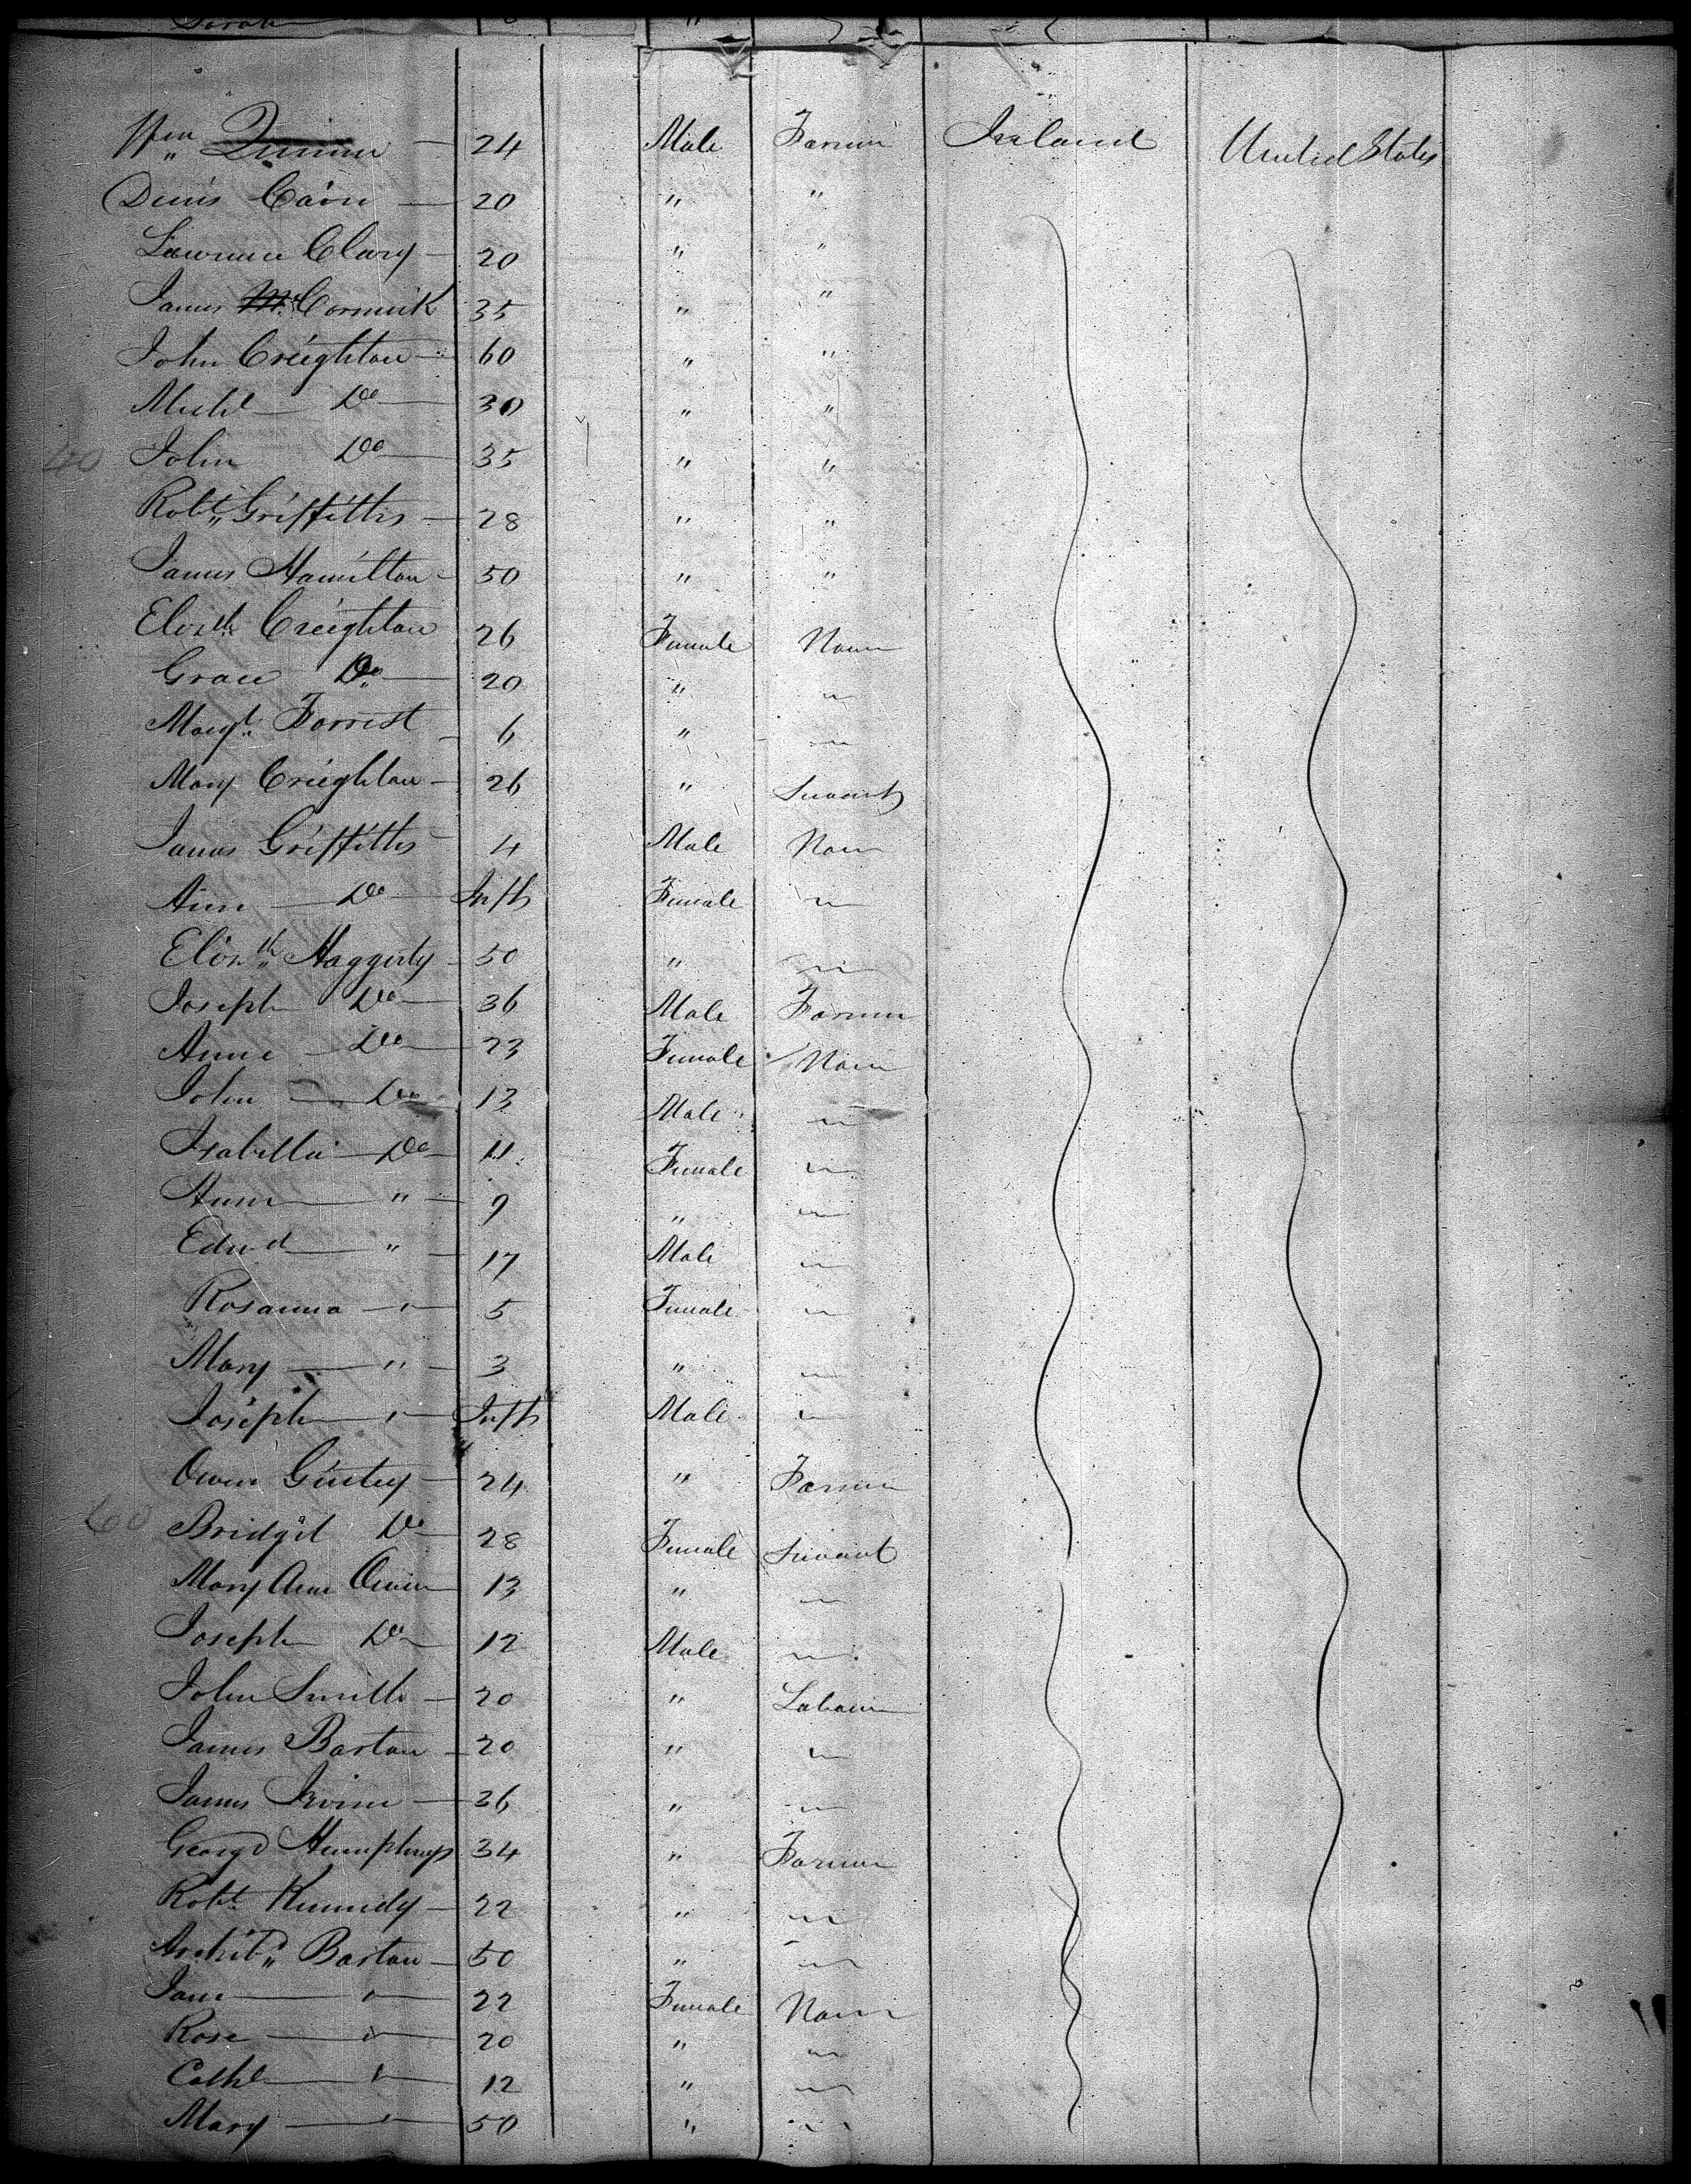 Sarah "
Wm Quinn 24 Male Farmer Ireland United States
Denis Cain 20 " "
Lawrence Clary 20 " "
James McCormick 35 " "
John Creighton 60 " "
Michl Do 30 " "
40 John Do 35 " "
Robt Griffiths 28 " "
James Hamilton 50 " "
Elizth Creighton 26 Female None
Grace Do 20 " "
Margt Forrest 6 " "
Mary Creighton 26 " Servant
James Griffiths 4 Male None
Ann Do Inft Female "
Elizth Haggerty 50 " "
Joseph Do 36 Male Farmer
Anne Do 23 Female None
John Do 13 Male "
Isabella Do 11 Female "
" 9 " "
Edwd " 17 Male "
Rosanna " 5 Female "
Mary " 3 " "
Joseph " Inft Male "
Owen Gintey 24 " Farmer
60 Bridget Do 28 Female Servant
Mary Ann Owen 13 " "
Joseph Do 12 Male "
John Smith 20 " Labourer
James Barton 20 " "
James Irvine 36 " "
George Humphreys 34 " Farmer
Robt Kennedy 22 " "
Archibd Barton 50 " "
Jane " 22 Female None
Rose " 20 " "
Cath " 12 " "
Mary " 50 " "